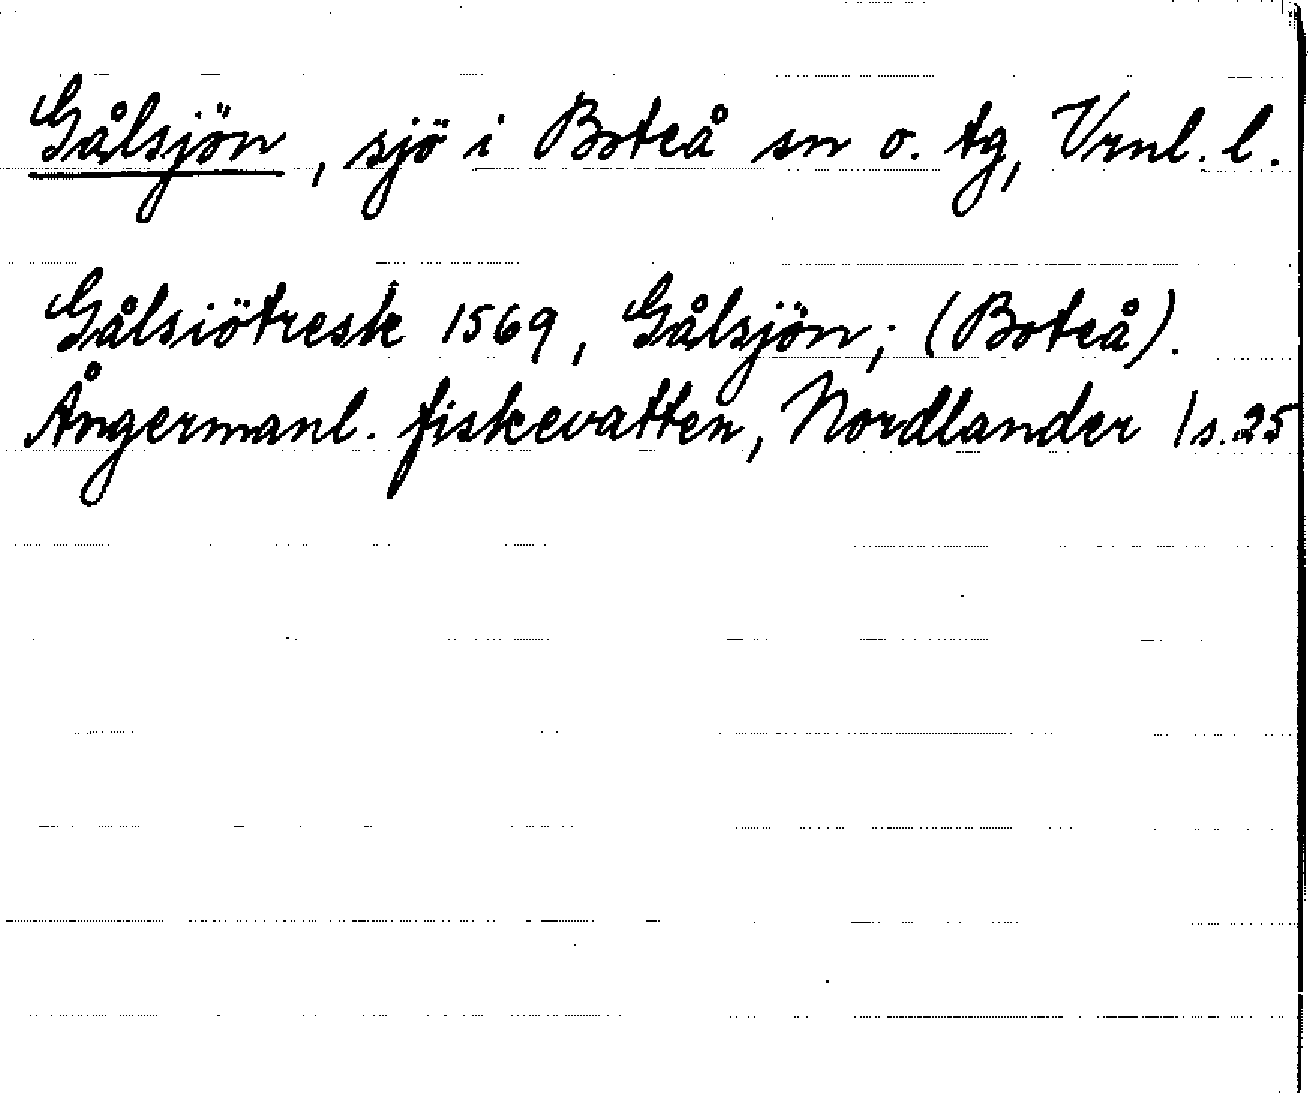 Gålsjön, sjö i Boteå sn o. tg, Vrnl. l.
Gålsiötresk 1569, Gålsjön; (Boteå).
Ångermanl. fiskevatten, Nordlander 1 s. 25